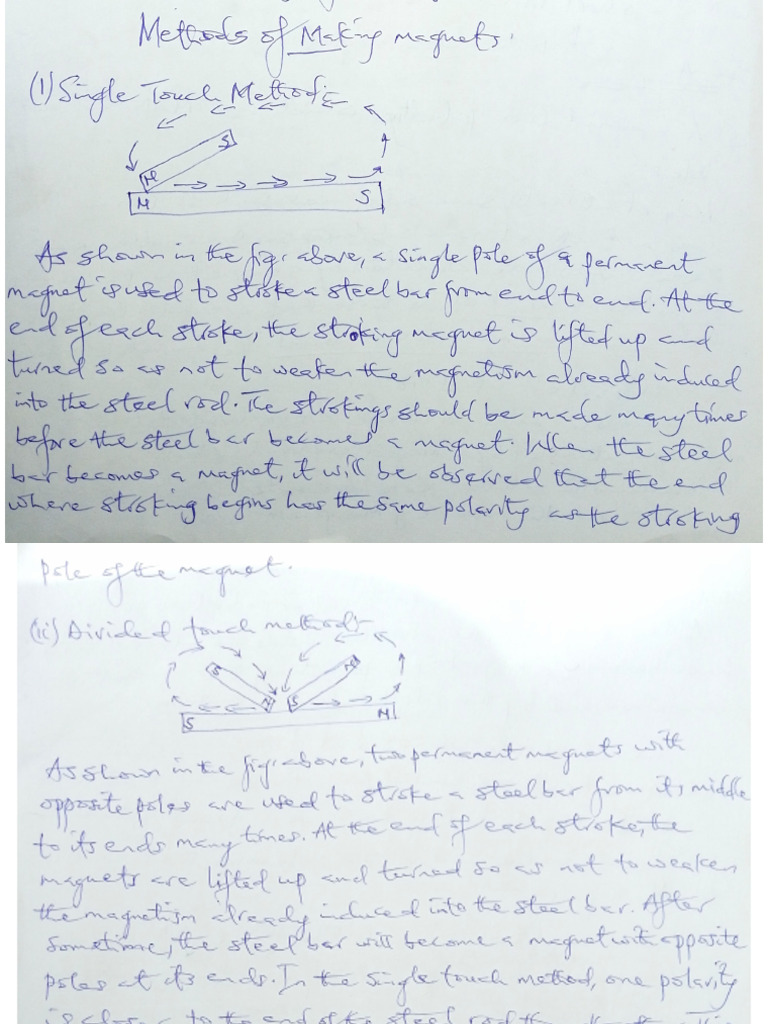 Methods of Making magnets.
(i) Single Touch Method:-
S
N
N S
As shown in the fig. above, a single pole of a permanent
magnet is used to stroke a steel bar from end to end. At the
end of each stroke, the stroking magnet is lifted up and
turned so as not to weaken the magnetism already induced
into the steel rod. The strokings should be made many times
before the steel bar becomes a magnet. When the steel
bar becomes a magnet, it will be observed that the end
where stroking begins has the same polarity as the stroking
pole of the magnet.
(ii) Divided touch method:-
S N
N S
S N
As shown in the fig. above, two permanent magnets with
opposite poles are used to stroke a steel bar from its middle
to its ends many times. At the end of each stroke, the
magnets are lifted up and turned so as not to weaken
the magnetism already induced into the steel bar. After
sometime, the steel bar will become a magnet with opposite
poles at its ends. In the single touch method, one polarity
is closer to the end of the steel rod than the